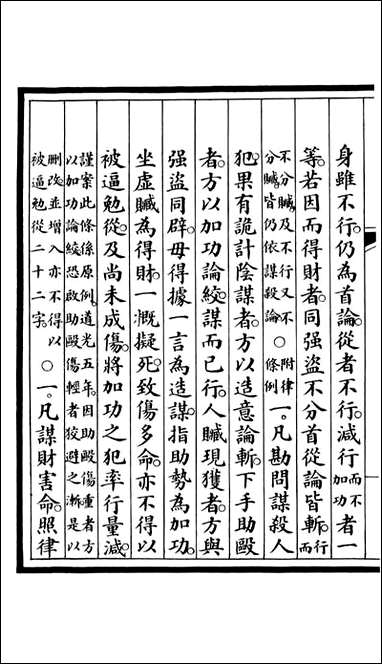 身雖不行。仍為首論。從者不行。減行而不加功者一
等。若因而得財者。同強盜不分首從論皆斬。行而
不分贓。及不行又不分贓。皆仍依謀殺論。○附律條例一。凡勘問謀殺人
犯。果有詭計陰謀者。方以造意論斬。下手助毆
者。方以加功論絞。謀而已行。人贓現獲者。方與
強盜同辟。毋得據一言為造謀。指助勢為加功。
坐虛贓為得財。一概擬死。致傷多命。亦不得以
被逼勉從。及尚未成傷。將加功之犯率行量減。
謹案此條係原例。道光五年。因助毆傷重者方以加功論絞。恐啟助毆傷輕者狡避之漸。是以
刪改。並增入亦不得以被逼勉從二十二字。○一。凡謀財害命。照律